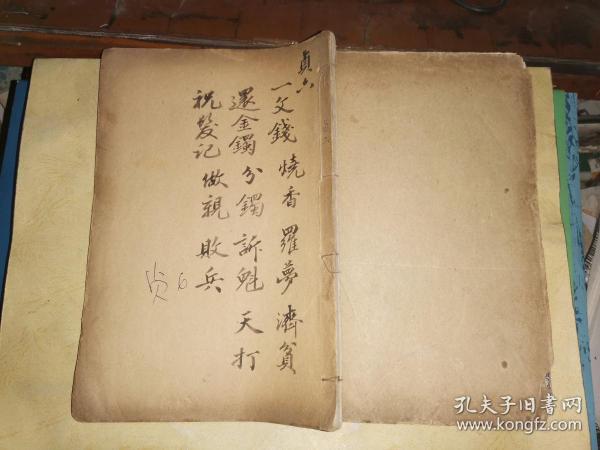 貞六
一文錢 燒香 羅夢 濟貧
還金鐲 分鐲 訴魁 天打
祝髮记 做親 敗兵
贞6
孔夫子旧書网
www.kongfz.com